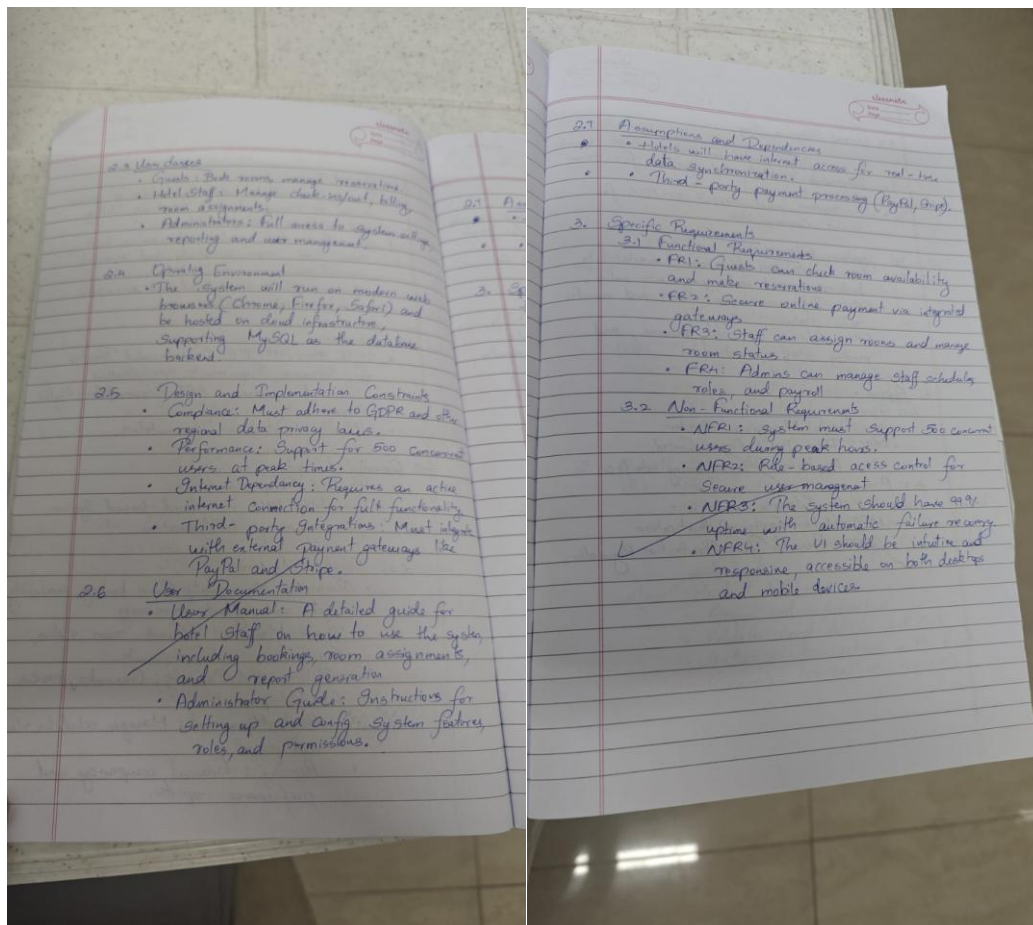 classmate
Date
Page
2.3 User classes
• Guests: Book rooms, manage reservations.
• Hotel Staff: Manage check-ins/out, billing,
room assignments.
• Administrators: Full access to system settings,
reporting and user management.
2.4 Operating Environment
• The system will run on modern web
browsers (Chrome, Firefox, Safari) and
be hosted on cloud infrastructure,
supporting MySQL as the database
backend.
2.5 Design and Implementation Constraints
• Compliance: Must adhere to GDPR and other
regional data privacy laws.
• Performance: Support for 500 concurrent
users at peak times.
• Internet Dependancy: Requires an active
internet connection for full functionality
• Third-party Integrations: Must integrate
with external payment gateways like
PayPal and Stripe.
2.6 User Documentation
• User Manual: A detailed guide for
hotel staff on how to use the system,
including bookings, room assignments,
and report generation
• Administrator Guide: Instructions for
setting up and config system features,
roles, and permissions.
2.7
3.
classmate
Date
Page
2.7 Assumptions and Dependencies
• Hotels will have internet access for real-time
data synchronization.
• Third-party payment processing (PayPal, Stripe).
3. Specific Requirements
3.1 Functional Requirements
• FR1: Guests can check room availability
and make reservations
• FR2: Secure online payment via integrated
gateways
• FR3: Staff can assign rooms and manage
room status
• FR4: Admins can manage staff schedules,
roles, and payroll
3.2 Non-Functional Requirements
• NFR1: System must support 500 concurrent
users during peak hours.
• NFR2: Role-based acess control for
Secure user managemet
• NFR3: The system should have 99.9%
uptime with automatic failure recovery.
• NFR4: The UI should be intutive and
responsive, accessible on both desktops
and mobile devices